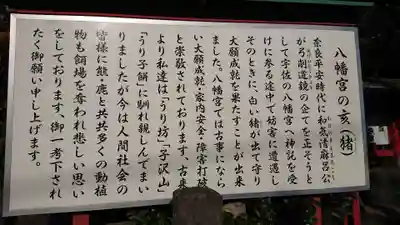 八幡宮の亥(猪)
奈良平安時代に和気清麻呂公
がら削道鏡の企てを正そうと
して宇佐の八幡宮へ神託を受
けに参る途中で妨害に遭遇し
そのときに、白い猪が出て守り
大願成就を果にすことが出来
ました。八幡宮では古事になら
い大願成就・家内安全・障害打破
と崇敬されております、古来
より私達は「うり坊」「子沢山」
「うり子餅」に馴れ親しんでまい
りましたが今は人間社会の
皆様に熊・鹿と共共多くの動植
物も餌場を奪われ悲しい思い
をしております、御一考下され
たく御願い申し上げます。